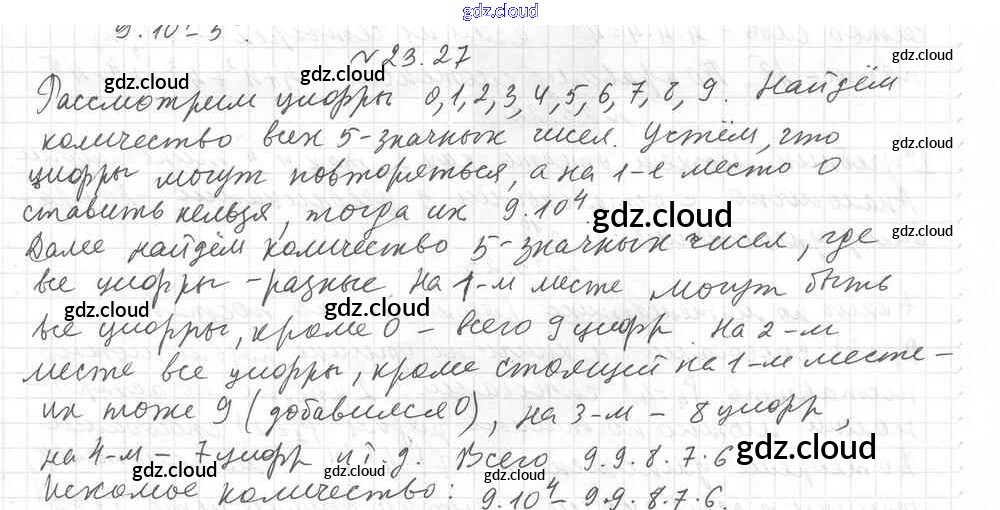 gdz.cloud
9.10⁴-5
№23.27
gdz.cloud
gdz.cloud
Рассмотрим цифры 0,1,2,3,4,5,6,7,8,9. Найдём
gdz.cloud
количество всех 5-значных чисел. Устём, что
gdz.cloud
цифры могут повторяться, а на 1-е место 0
ставить нельзя, тогда их 9.10⁴.
gdz.cloud
gdz.cloud
Далее найдём количество 5-значных чисел, где
gdz.cloud
все цифры - разные На 1-м месте могут быть
gdz.cloud
gdz.cloud
все цифры, кроме 0 - всего 9 цифр на 2-м
месте все цифры, кроме стоящей на 1-м месте -
их тоже 9 (добавился 0), на 3-м - 8 цифр,
gdz.cloud
на 4-м - 7 цифр и т.д. Всего 9.9.8.7.6
gdz.cloud
Искомое количество: 9.10⁴- 9.9.8.7.6.